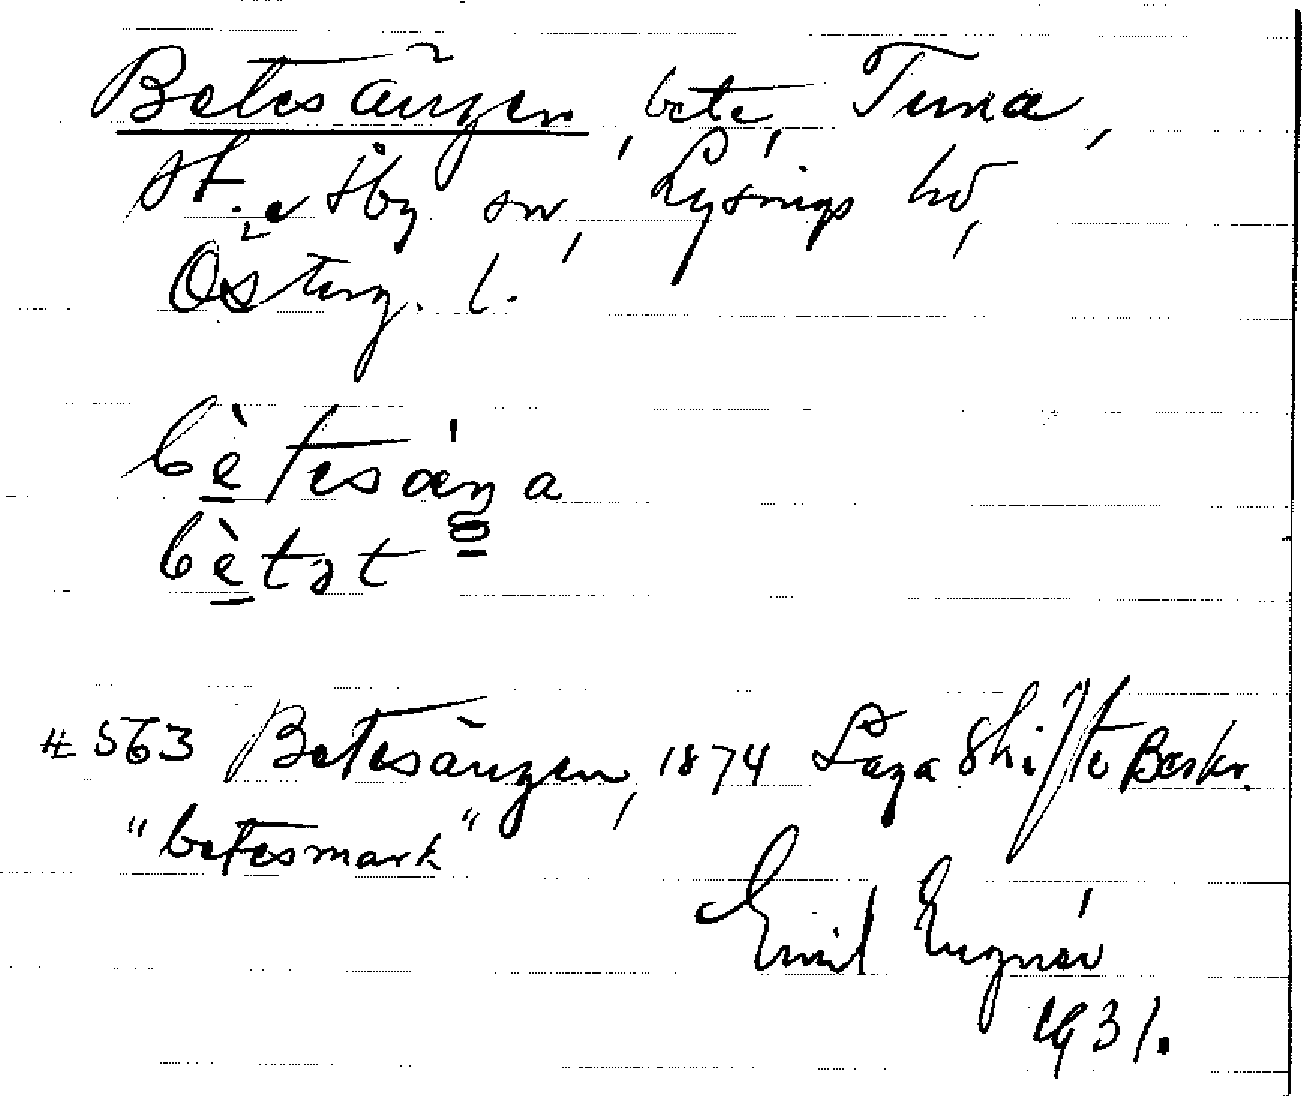 Betesängen, bete, Tuna,
St. Åby sn, Lysings hd,
Österg. l.
bètesäŋa
bètət
# 563 Betesängen, 1874 Laga Skifte Beskr.
"betesmark"
Emil Eugnér
1931.